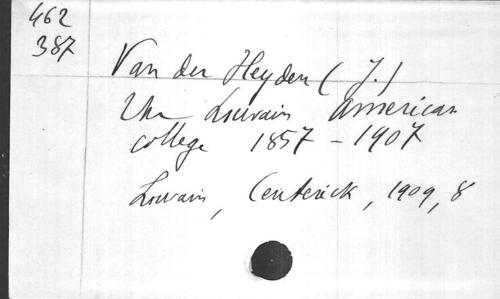 462
387
Van der Heyden (J.)
The Louvain American
college 1857 - 1907
Louvain, Ceuterick, 1909, 8